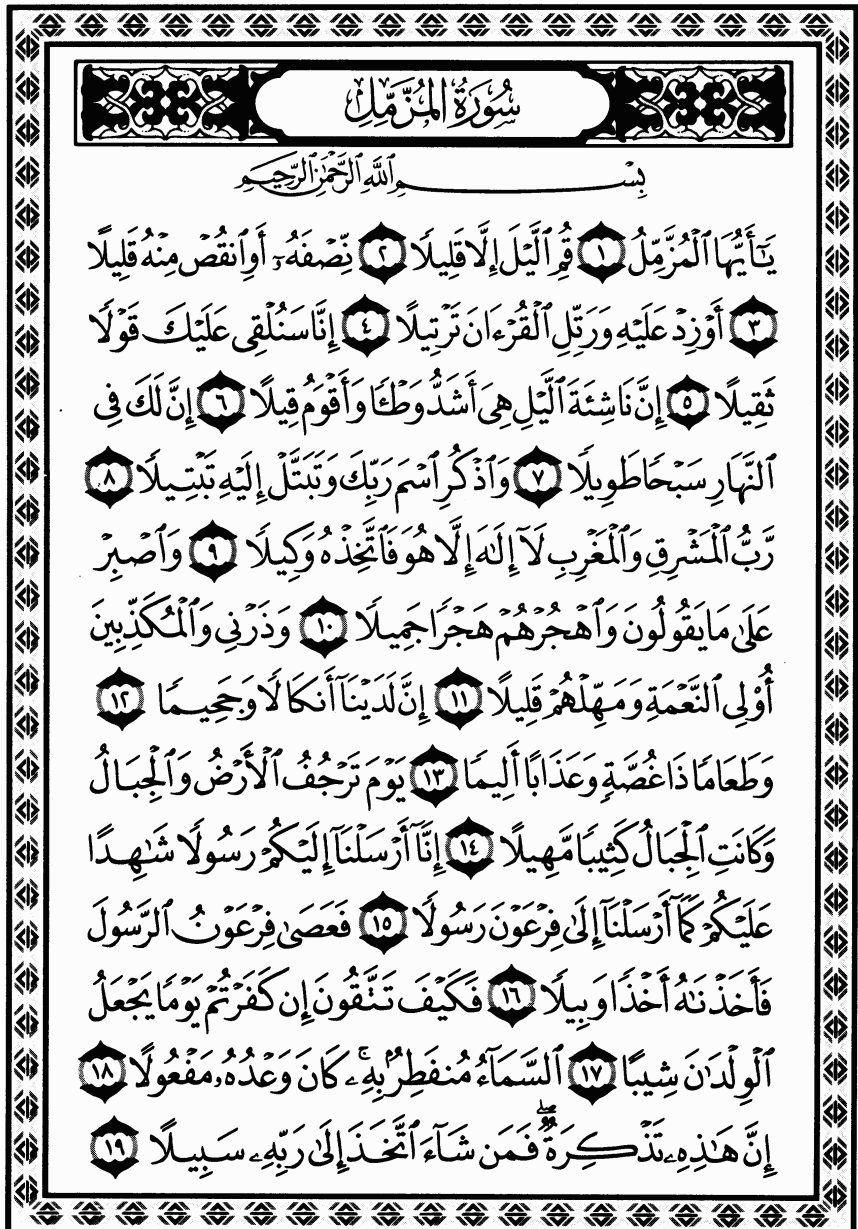 سُورَةُ الْمُزَّمِّلِ
بِسْمِ ٱللَّهِ ٱلرَّحْمَٰنِ ٱلرَّحِيمِ
يَٰٓأَيُّهَا ٱلْمُزَّمِّلُ ١ قُمِ ٱلَّيْلَ إِلَّا قَلِيلًا ٢ نِّصْفَهُۥٓ أَوِ ٱنقُصْ مِنْهُ قَلِيلًا
٣ أَوْ زِدْ عَلَيْهِ وَرَتِّلِ ٱلْقُرْءَانَ تَرْتِيلًا ٤ إِنَّا سَنُلْقِى عَلَيْكَ قَوْلًا
ثَقِيلًا ٥ إِنَّ نَاشِئَةَ ٱلَّيْلِ هِىَ أَشَدُّ وَطْـًٔا وَأَقْوَمُ قِيلًا ٦ إِنَّ لَكَ فِى
ٱلنَّهَارِ سَبْحًا طَوِيلًا ٧ وَٱذْكُرِ ٱسْمَ رَبِّكَ وَتَبَتَّلْ إِلَيْهِ تَبْتِيلًا ٨
رَّبُّ ٱلْمَشْرِقِ وَٱلْمَغْرِبِ لَآ إِلَٰهَ إِلَّا هُوَ فَٱتَّخِذْهُ وَكِيلًا ٩ وَٱصْبِرْ
عَلَىٰ مَا يَقُولُونَ وَٱهْجُرْهُمْ هَجْرًا جَمِيلًا ١٠ وَذَرْنِى وَٱلْمُكَذِّبِينَ
أُو۟لِى ٱلنَّعْمَةِ وَمَهِّلْهُمْ قَلِيلًا ١١ إِنَّ لَدَيْنَآ أَنكَالًا وَجَحِيمًا ١٢
وَطَعَامًا ذَا غُصَّةٍ وَعَذَابًا أَلِيمًا ١٣ يَوْمَ تَرْجُفُ ٱلْأَرْضُ وَٱلْجِبَالُ
وَكَانَتِ ٱلْجِبَالُ كَثِيبًا مَّهِيلًا ١٤ إِنَّآ أَرْسَلْنَآ إِلَيْكُمْ رَسُولًا شَٰهِدًا
عَلَيْكُمْ كَمَآ أَرْسَلْنَآ إِلَىٰ فِرْعَوْنَ رَسُولًا ١٥ فَعَصَىٰ فِرْعَوْنُ ٱلرَّسُولَ
فَأَخَذْنَٰهُ أَخْذًا وَبِيلًا ١٦ فَكَيْفَ تَتَّقُونَ إِن كَفَرْتُمْ يَوْمًا يَجْعَلُ
ٱلْوِلْدَٰنَ شِيبًا ١٧ ٱلسَّمَآءُ مُنفَطِرٌۢ بِهِۦ ۚ كَانَ وَعْدُهُۥ مَفْعُولًا ١٨
إِنَّ هَٰذِهِۦ تَذْكِرَةٌ ۖ فَمَن شَآءَ ٱتَّخَذَ إِلَىٰ رَبِّهِۦ سَبِيلًا ١٩